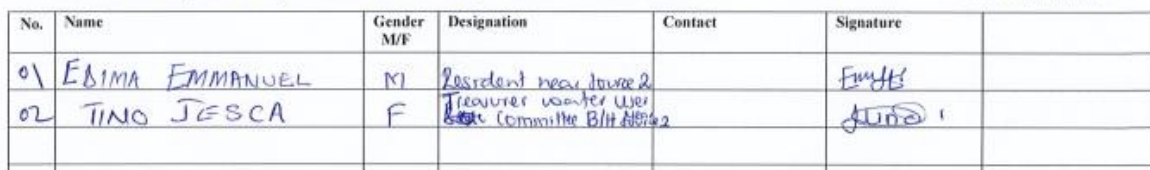 No. Name Gender M/F Designation Contact Signature
01 EDIMA EMMANUEL M Resident near source 2
02 TINO JESCA F Treasurer water user
Committee B/H 2